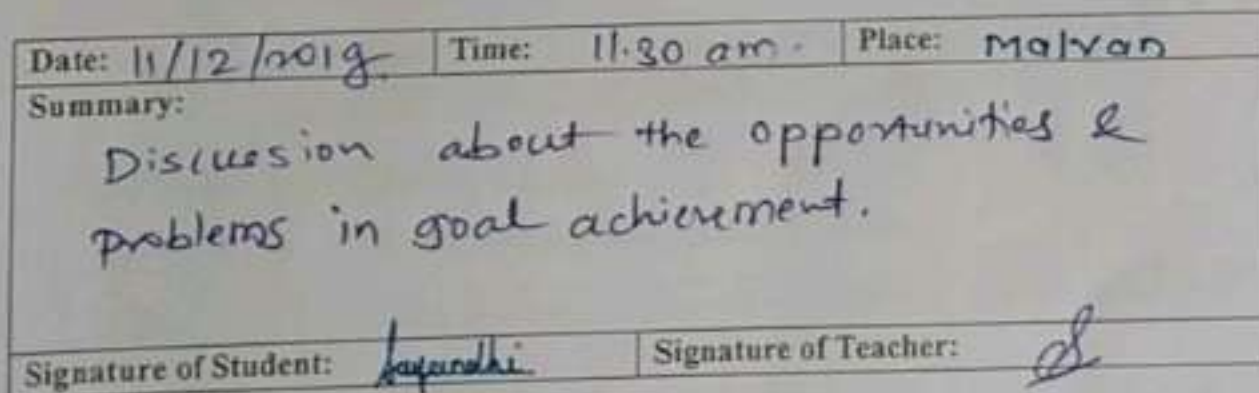 Date: 11/12/2019 Time: 11.30 am. Place: Malvan
Summary:
Discussion about the opportunities &
problems in goal achievement.
Signature of Student: Signature of Teacher: